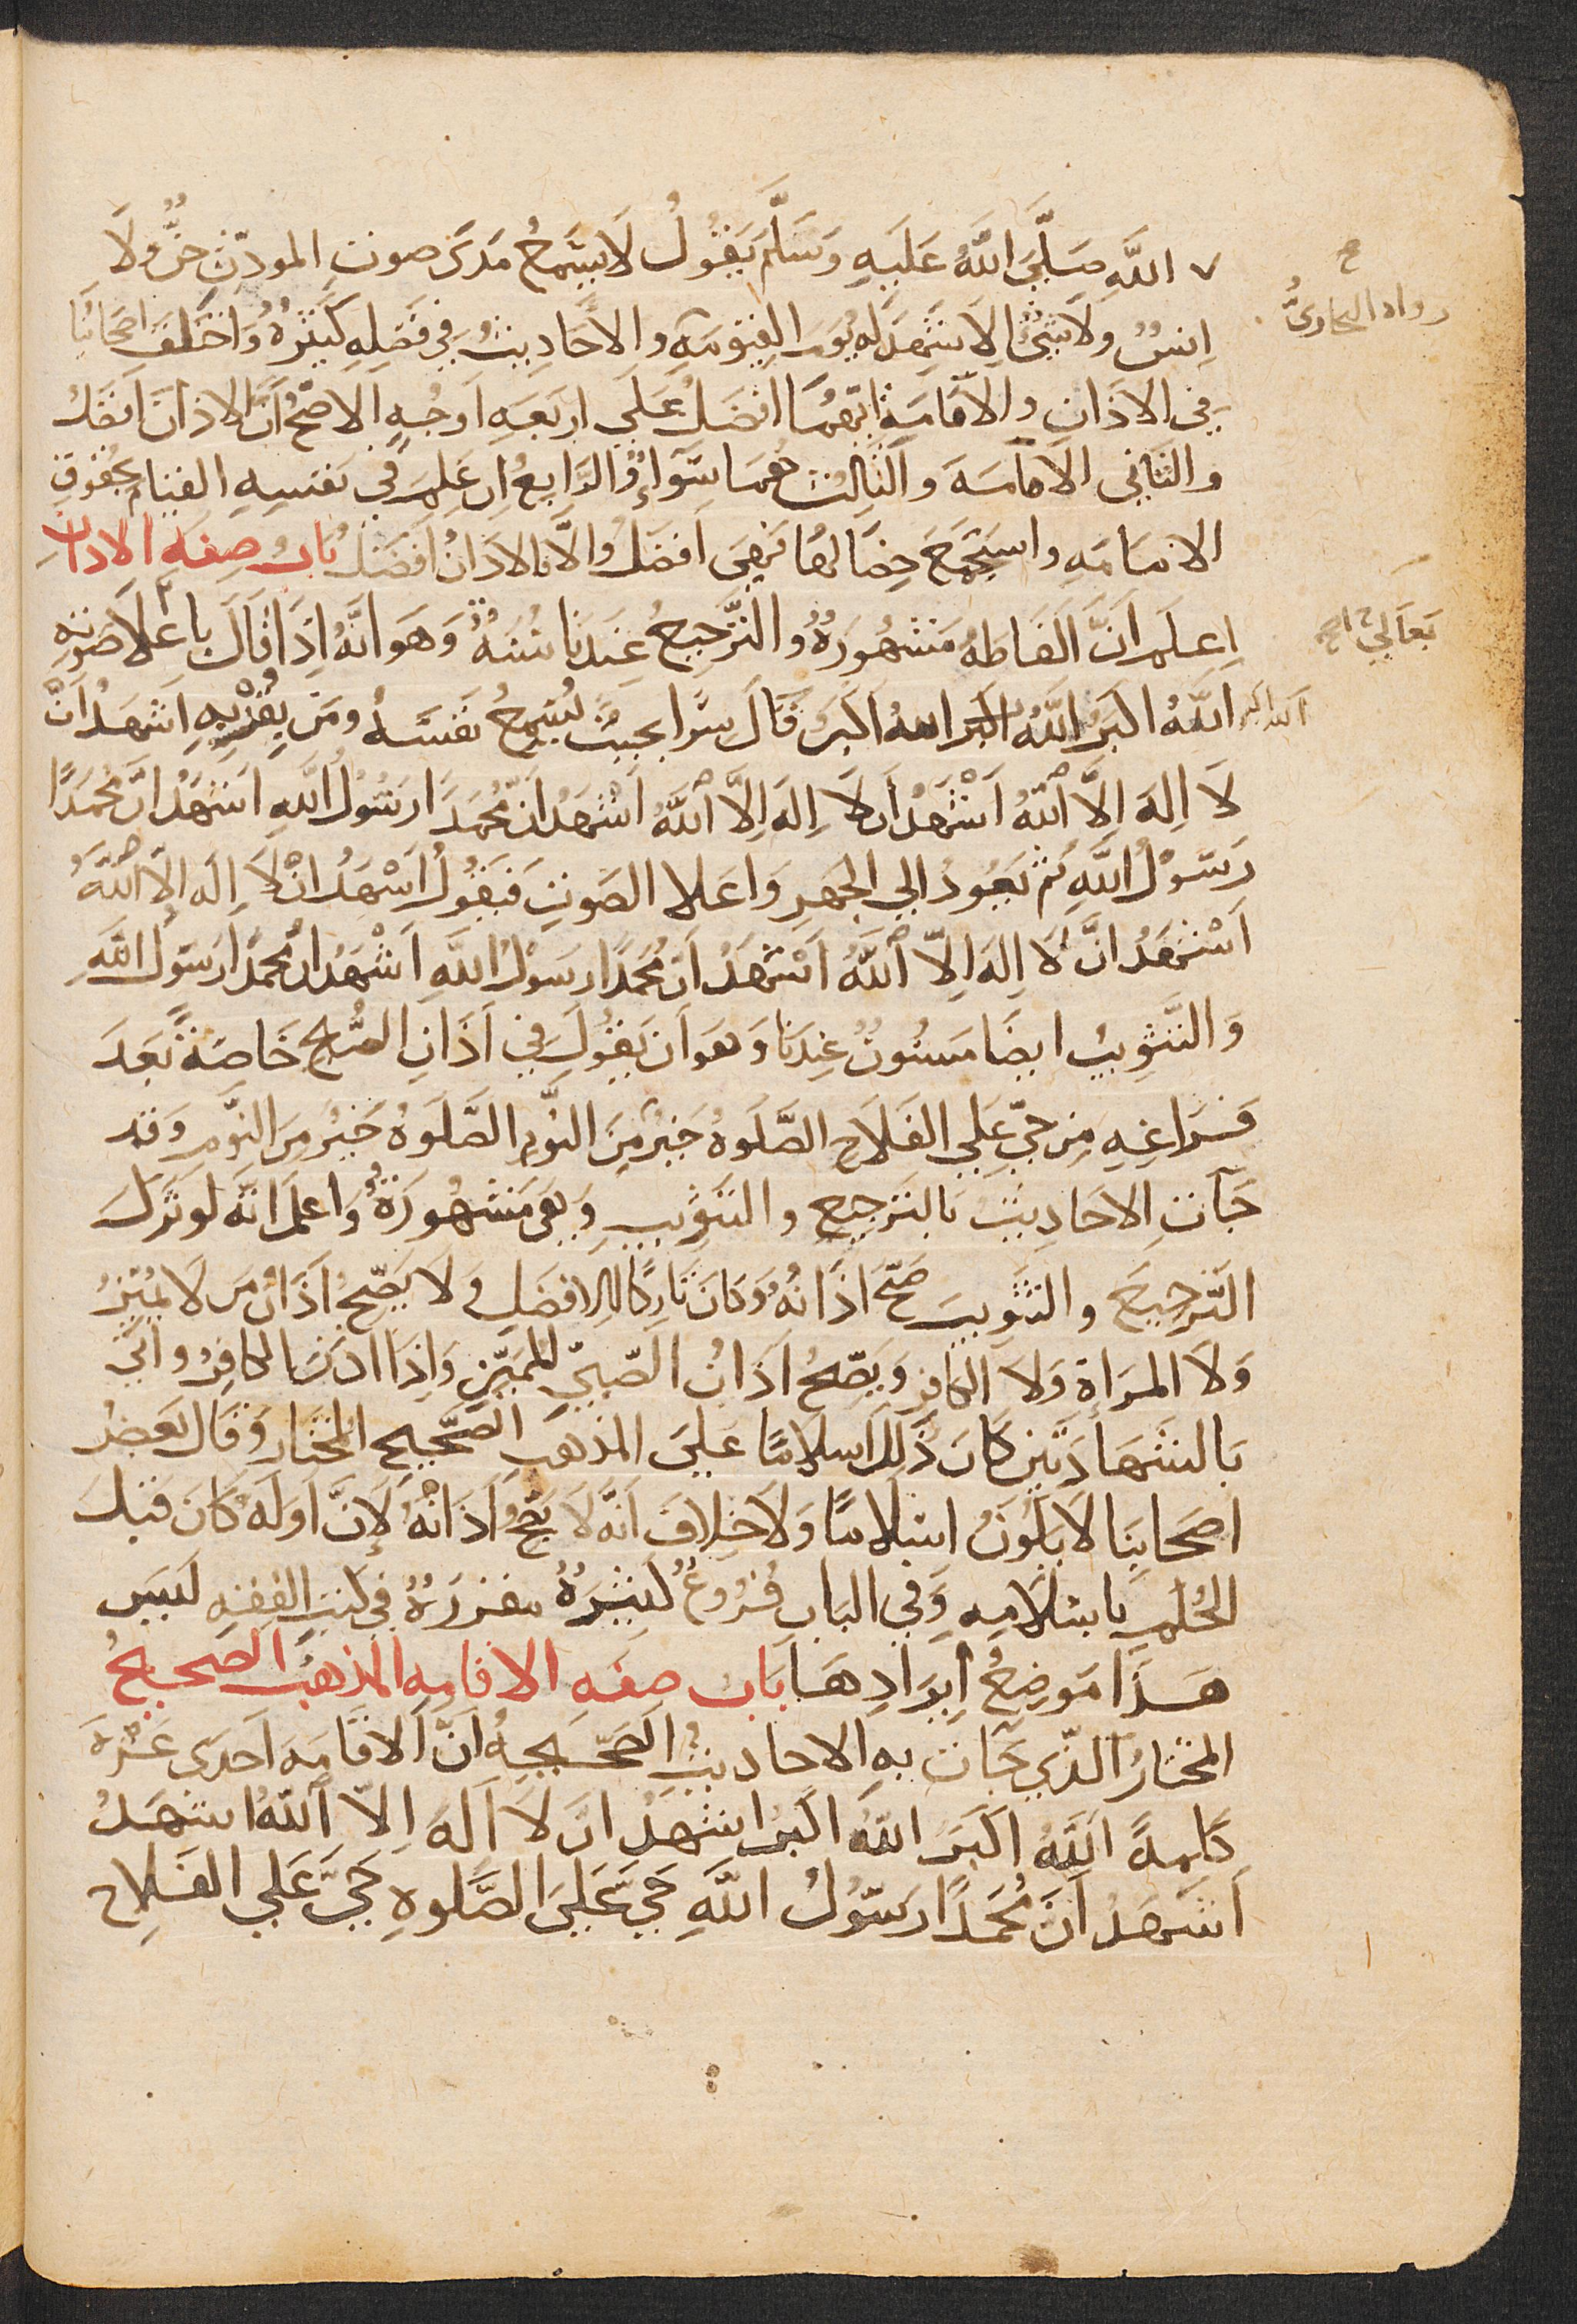 الله صَلَّى اللهُ عَلَيهِ وَسَلَّم يَقُولُ لَا يَسْمَعُ مَدَى صوتِ المودّنِ جنٌّ ولَا
رواه البخاريُّ
اِنسٌ ولَا شَيْءٌ اِلَا شَهِدَ له يَومَ القِيٰمَةِ والاَحَادِيثُ في فَضلِهِ كَثيرةٌ وَاختَلفَ اصحَابُنَا
في الاذَانِ والاقَامَةِ ايّهُمَا افضَلُ عَلَى اربَعَهِ اَوجُهٍ الاصَحُّ اَنَّ الاذانَ افضَلُ
والثَاني الاقامَهَ والثَالِثُ هُمَا سَوَآءٌ والرَّابعُ اِن عَلِمَ في نَفسِهِ القيَام بحُقوقِ
الاقامَهِ واستَجمَعَ خِصَالهَا فَهِىَ اَفضَلُ وَالَّا فالاذَانُ اَفضَلُ بَابُ صِفَه الاذانِ
اِعلَم اَنَّ اَلفَاظَهُ مَشهُورَةٌ والتَّرجِيعُ عِندَنا سُنَةٌ وَهَو انَّهُ اِذَا قَالَ باَعْلَا صَوتِه
اللهُ اكبَرُ اللهُ اكبَر الله اكبَر قَالَ سِرًّا بحَيثُ يُسْمِعُ نَفسَهُ ومَن بِقُرْبِهِ اشهَدُ اَنْ
الله اكبر
لَا اِلهَ اِلَّا اللهُ اَشْهَدُ اَن لَا اِلهَ اِلَّا اللهُ اَشهَدُ انَّ مُحَمَدًا رَسُولُ اللهِ اشهَدُ اَنَّ مُحَمَدًا
رَسَوْلُ اللهِ ثم يَعُودُ الي الجَهرِ وَاعلا الصَوتِ فَيقُولُ اَشْهَدُ انْ لَا اِلَه اِلَّا اللهُ
اَشْهَدُ انَّ لَا اِلهَ اِلَّا اللهُ اَشهَدُ اَن مُحَمَدًا رسَولُ اللهِ اَشْهَدُ ان مُحمَدًا رسَولُ اللهِ
وَالتَّثوِيبُ ايضًا مَسنُونٌ عِندَنَا وَهَو اَن يَقُولَ في اَذَانِ الصُّبح خَاصَةً بَعدَ
فَراغِهِ مِن حَيّ عَلي الفَلَاحِ الصَّلَوةُ خَيرٌ مِنَ النَّومِ الصَّلَوةُ خَيرٌ مِنَ النَّومِ وَقد
جَآتِ الاحَاديثُ بَالتَرجِيعِ والتَثوِيبِ وَهِىَ مَشهُورَةٌ وَاعلَم اَنَّه لو تَركَ
التَّرجِيعَ والتَثوِيبَ صَحّ اَذَانُهُ وَكانَ تَارِكًا لِلافضَلِ وَلَا يَصّحُ اَذَانُ مَن لَا يُميِّزُ
وَلَا المرَاةِ وَلَا الكافِرِ وَيَصِّحُ اَذَانُ الصّبِيّ المُميِّزِ وَاِذَا اذَن الكافِرُ واتَي
بَالشَهَادَتَينِ كَانَ ذَلِكَ اسلامًا عَلَىَ المذهَبِ الصَّحِيحِ المُختَارِ وَقَال بَعضُ
اصحَابِنَا لَا يَكُونُ اسْلَامًا وَلَا خِلافَ اَنَّه لَا يَصحُ اَذَانُهُ لاِنَّ اَولَهُ كَانَ قَبلَ
الحُكمِ باسْلَامِهِ وَفي البَابِ فُرُوعٌ كثيَرَةٌ مقررَةٌ في كتبِ الفِقهِ لَيسَ
هَذَا مَوضِعُ اِيرَادِهَا بَابُ صفَهِ الاقامِه المذهبُ الصحيحُ
المختَارُ الّذي جَآت بهِ الاحاديثُ الصَّحيحهُ اَنَّ الاقَامَهَ اَحدَى عَشرَه
كَلِمةً اللهُ اكبَرُ اللهُ اكبَرُ اشهَدُ ان لَا اِلَهَ اِلّا اللهُ اشهَدُ
اَشهَدُ اَنَ مُحَمَدًا رَسُولُ اللهِ حَيَّ عَلَىَ الصَّلَوهِ حَيَّ عَلَي الفَلَاح